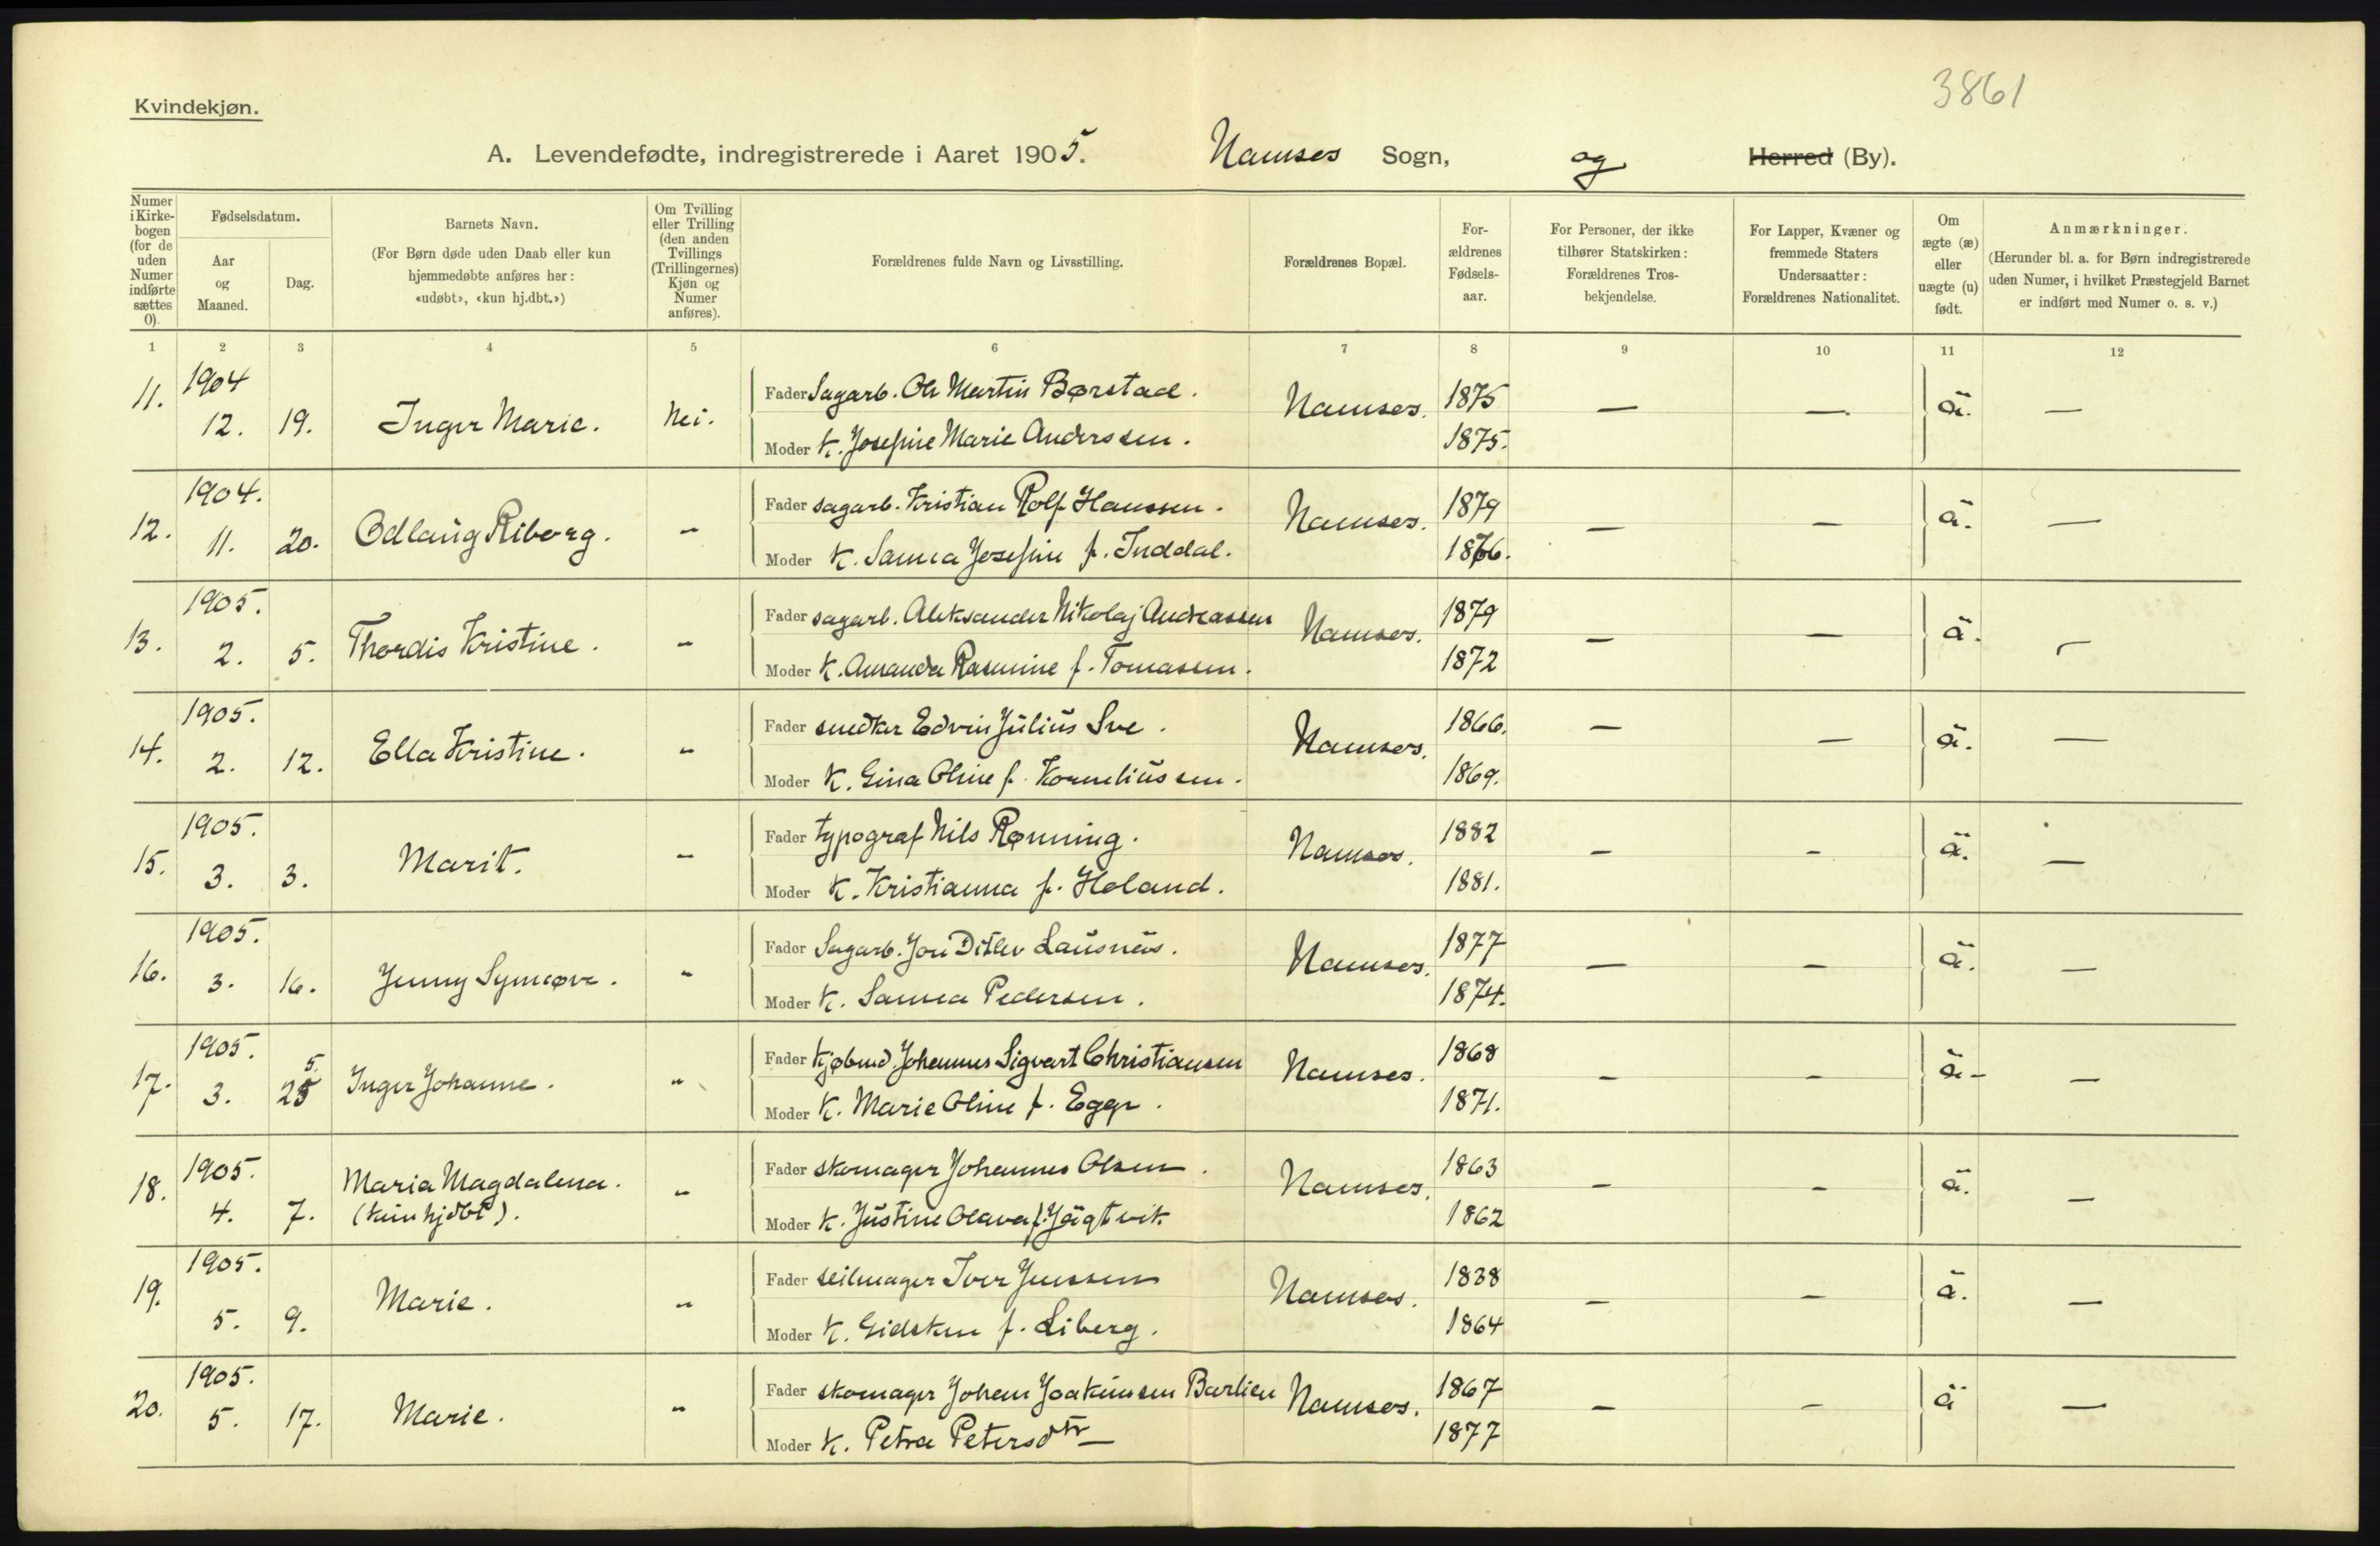 3861
Kvindekjøn.
A. Levendefødte, indregistrerede i Aaret 1905. Namsos Sogn, og Herred (By).
Numer i Kirke-bogen (for de uden Numer indførte sættes 0).
Fødselsdatum.
Aar og Maaned.
Dag.
Barnets Navn.
(For Børn døde uden Daab eller kun hjemmedøbte anføres her: «udøbt», «kun hj.dbt.»)
Om Tvilling eller Trilling (den anden Tvillings (Trillingernes) Kjøn og Numer anføres).
Forældrenes fulde Navn og Livsstilling.
Forældrenes Bopæl.
For-ældrenes Fødsels-aar.
For Personer, der ikke tilhører Statskirken: Forældrenes Tros-bekjendelse.
For Lapper, Kvæner og fremmede Staters Undersaatter: Forældrenes Nationalitet.
Om ægte (æ) eller uægte (u) født.
Anmærkninger.
(Herunder bl. a. for Børn indregistrerede uden Numer, i hvilket Præstegjeld Barnet er indført med Numer o. s. v.)
1 2 3 4 5 6 7 8 9 10 11 12
11. 1904 12. 19. Inger Marie. Nei. Fader Sagarb. Ole Martin Børstad. Namsos. 1875 — — ä. —
Moder K. Josefine Marie Anderssen. 1875.
12. 1904. 11. 20. Odlaug Riborg. - Fader sagarb. Kristian Rolf Hanssen. Namsos. 1879 — — ä. —
Moder K. Sanna Josefine f. Inddal. 1876.
13. 1905. 2. 5. Thordis Kristine. - Fader sagarb. Aleksander Nikolaj Andreassen Namsos. 1879 — — ä. —
Moder K. Amanda Rasmine f. Tomassen. 1872
14. 1905. 2. 12. Ella Kristine. - Fader snedker Edvin Julius Sve. Namsos. 1866. — — ä. —
Moder K. Gina Oline f. Korneliussen. 1869.
15. 1905. 3. 3. Marit. - Fader typograf Nils Rønning. Namsos. 1882 — - ä. —
Moder K. Kristianna f. Høland. 1881.
16. 1905. 3. 16. Jenny Synnøve. - Fader Sagarb. Jon Ditlev Lausnes. Namsos. 1877 — — ä. —
Moder K. Sanna Pedersen. 1874.
17. 1905. 3. 25 5. Inger Johanne. " Fader Kjøbmd. Johannes Sigvart Christiansen Namsos. 1868 — - ä - —
Moder K. Marie Oline f. Egge. 1871.
18. 1905. 4. 7. Maria Magdalena. (kun hjdbt). " Fader skomager Johannes Olsen. Namsos. 1863 — - ä. —
Moder K. Justine Olava f. Jägtvik 1862
19. 1905. 5. 9. Marie. " Fader seilmager Iver Jenssen Namsos. 1838 — — ä. —
Moder K. Gidsken f. Liberg. 1864
20. 1905. 5. 17. Marie. " Fader skomager Johan Joakimsen Barlien Namsos. 1867 — — ä —
Moder K. Petra Petersdtr — 1877